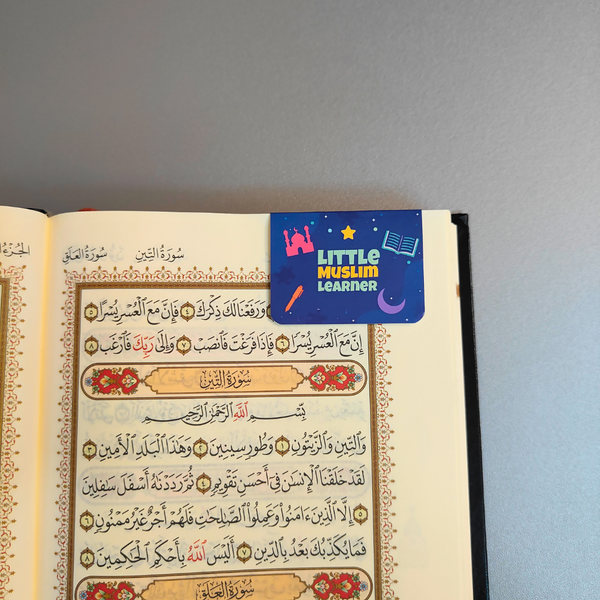 الجزء
سورة العلق
سورة التين
LITTLE
MUSLIM
LEARNER
وَرَفَعْنَا لَكَ ذِكْرَكَ ٤ فَإِنَّ مَعَ الْعُسْرِ يُسْرًا ٥
إِنَّ مَعَ الْعُسْرِ يُسْرًا ٦ فَإِذَا فَرَغْتَ فَانصَبْ ٧ وَإِلَىٰ رَبِّكَ فَارْغَب ٨
سورة التين
بِسْمِ اللَّهِ الرَّحْمَٰنِ الرَّحِيمِ
وَالتِّينِ وَالزَّيْتُونِ ١ وَطُورِ سِينِينَ ٢ وَهَٰذَا الْبَلَدِ الْأَمِينِ ٣
لَقَدْ خَلَقْنَا الْإِنسَانَ فِي أَحْسَنِ تَقْوِيمٍ ٤ ثُمَّ رَدَدْنَاهُ أَسْفَلَ سَافِلِينَ
٥ إِلَّا الَّذِينَ آمَنُوا وَعَمِلُوا الصَّالِحَاتِ فَلَهُمْ أَجْرٌ غَيْرُ مَمْنُونٍ ٦
فَمَا يُكَذِّبُكَ بَعْدُ بِالدِّينِ ٧ أَلَيْسَ اللَّهُ بِأَحْكَمِ الْحَاكِمِينَ ٨
سورة العلق